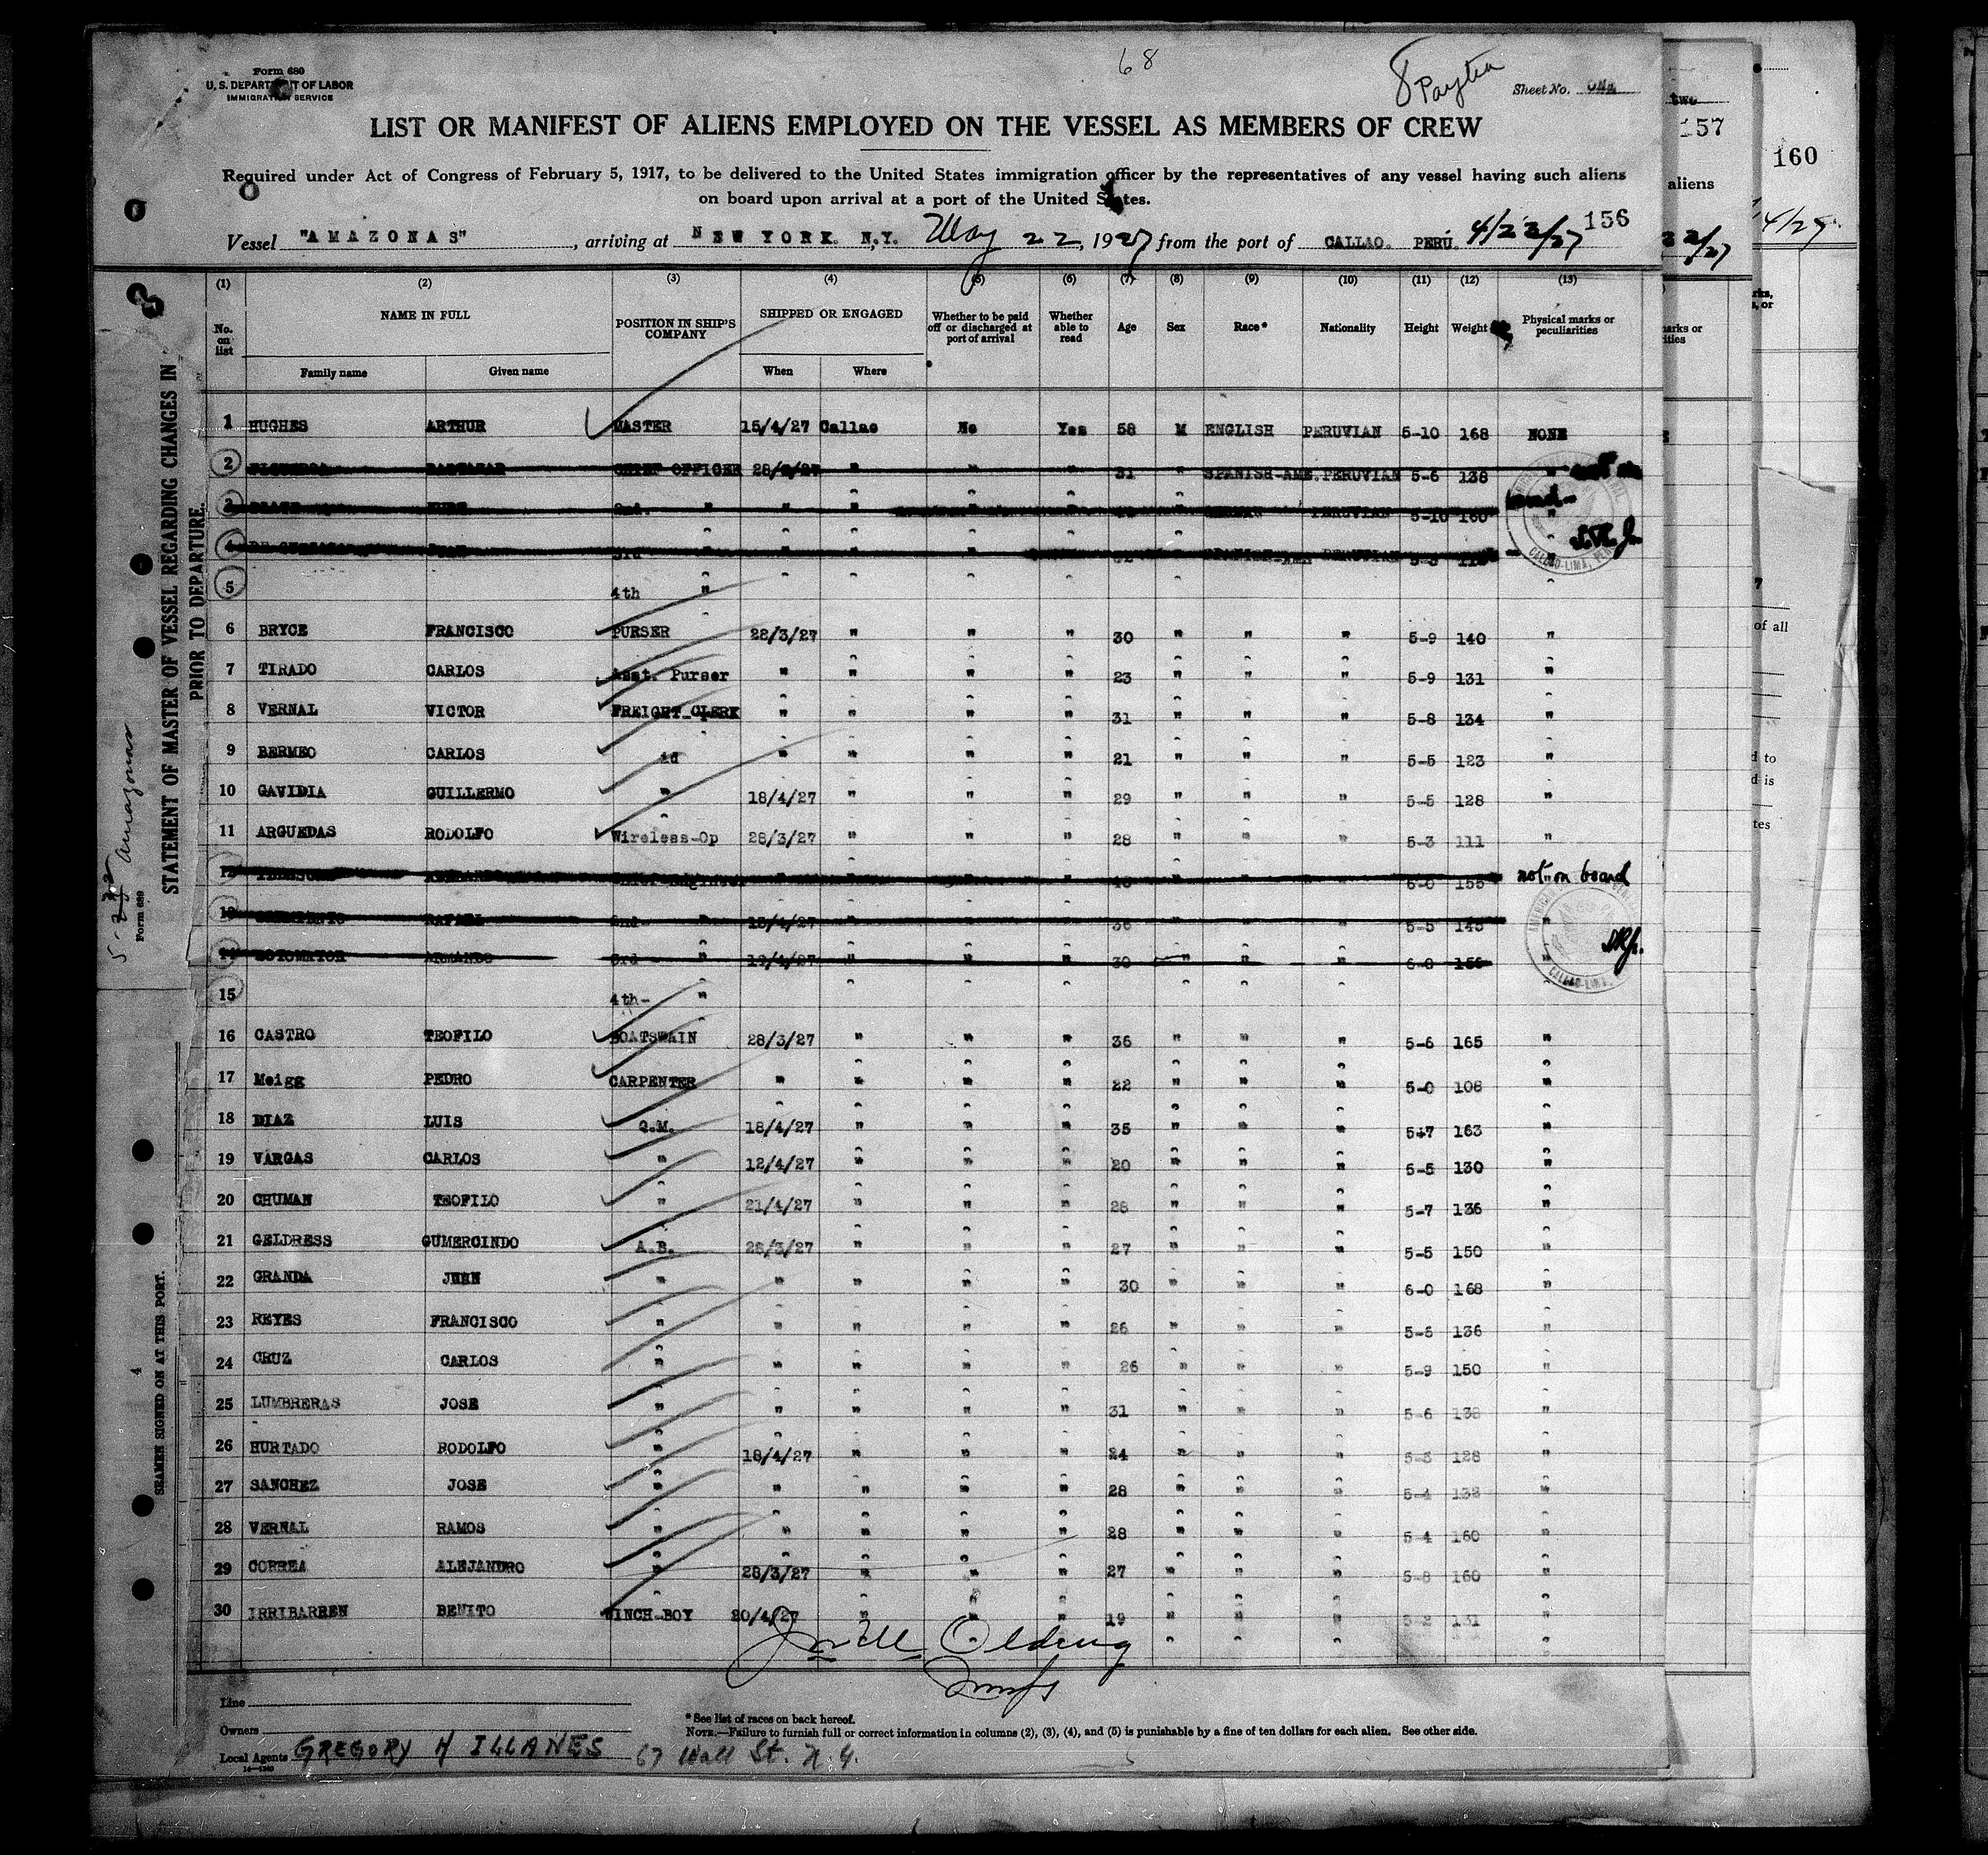 68
8 Payta
Form 680
U. S. DEPARTMENT OF LABOR
IMMIGRATION SERVICE
Sheet No. ONE
LIST OR MANIFEST OF ALIENS EMPLOYED ON THE VESSEL AS MEMBERS OF CREW
Required under Act of Congress of February 5, 1917, to be delivered to the United States immigration officer by the representatives of any vessel having such aliens
on board upon arrival at a port of the United States.
156
Vessel "AMAZONAS", arriving at NEW YORK. N.Y. May 22, 1927 from the port of CALLAO. PERÚ. 4/23/27
(1) (2) (3) (4) (5) (6) (7) (8) (9) (10) (11) (12) (13)
No. on list NAME IN FULL POSITION IN SHIP'S COMPANY SHIPPED OR ENGAGED Whether to be paid off or discharged at port of arrival Whether able to read Age Sex Race* Nationality Height Weight Physical marks or peculiarities
Family name Given name When Where
1 HUGHES ARTHUR MASTER 15/4/27 Callao No Yes 58 M ENGLISH PERUVIAN 5-10 168 NONE
2 CHIEF OFFICER 28/3/27 " " " 31 " SPANISH-AME. PERUVIAN 5-6 138 "
3 2nd. " " " " " " PERUVIAN 5-10 160 "
4 3rd " " " " " " SPANISH-AME PERUVIAN "
5 4th "
6 BRYCE FRANCISCO PURSER 28/3/27 " " " 30 " " " 5-9 140 "
7 TIRADO CARLOS Asst. Purser " " " " 23 " " " 5-9 131 "
8 VERNAL VICTOR FREIGHT-CLERK " " " " 31 " " " 5-8 134 "
9 BERMEO CARLOS id " " " " 21 " " " 5-5 123 "
10 GAVIDIA GUILLERMO " 18/4/27 " " " 29 " " " 5-5 128 "
11 ARGUEDAS RODOLFO Wireless-Op 28/3/27 " " " 28 " " " 5-3 111 "
12 Chief-Engineer " " " " " " " 6-0 155 not on board
13 RAFAEL 2nd- " 15/4/27 " " " 36 " " " 5-5 145 "
14 ARMANDO 3rd - " " " " 30 " " " "
15 4th- "
16 CASTRO TEOFILO BOATSWAIN 28/3/27 " " " 36 " " " 5-6 165 "
17 Meigg PEDRO CARPENTER " " " " 22 " " " 5-0 108 "
18 DIAZ LUIS Q.M. 18/4/27 " " " 35 " " " 5-7 163 "
19 VARGAS CARLOS " 12/4/27 " " " 20 " " " 5-5 130 "
20 CHUMAN TEOFILO " 21/4/27 " " " 28 " " " 5-7 136 "
21 GELDRESS GUMERCINDO A.B. 28/3/27 " " " 27 " " " 5-5 150 "
22 GRANDA JUAN " " " " " 30 " " " 6-0 168 "
23 REYES FRANCISCO " " " " " 26 " " " 5-5 136 "
24 CRUZ CARLOS " " " " " 26 " " " 5-9 150 "
25 LUMBRERAS JOSE " " " " " 31 " " " 5-6 138 "
26 HURTADO RODOLFO " 18/4/27 " " " 24 " " " 5-3 128 "
27 SANCHEZ JOSE " " " " " 28 " " " 5-4 138 "
28 VERNAL RAMOS " " " " " 28 " " " 5-4 160 "
29 CORREA ALEJANDRO " 28/3/27 " " " 27 " " " 5-8 160 "
30 IRRIBARREN BENITO WINCH-BOY 20/4/27 " " " 19 " " " 5-2 131 "
Line
Owners
Local Agents GREGORY H ILLANES 67 Wall St. N.Y.
14—1240
* See list of races on back hereof.
NOTE.—Failure to furnish full or correct information in columns (2), (3), (4), and (5) is punishable by a fine of ten dollars for each alien. See other side.
STATEMENT OF MASTER OF VESSEL REGARDING CHANGES IN
PRIOR TO DEPARTURE.
Form 689
Amazonas
SEAMEN SIGNED ON AT THIS PORT.
4
CALLAO-LIMA, PERU
CALLAO-LIMA,
two
157
aliens
160
4/29
of all